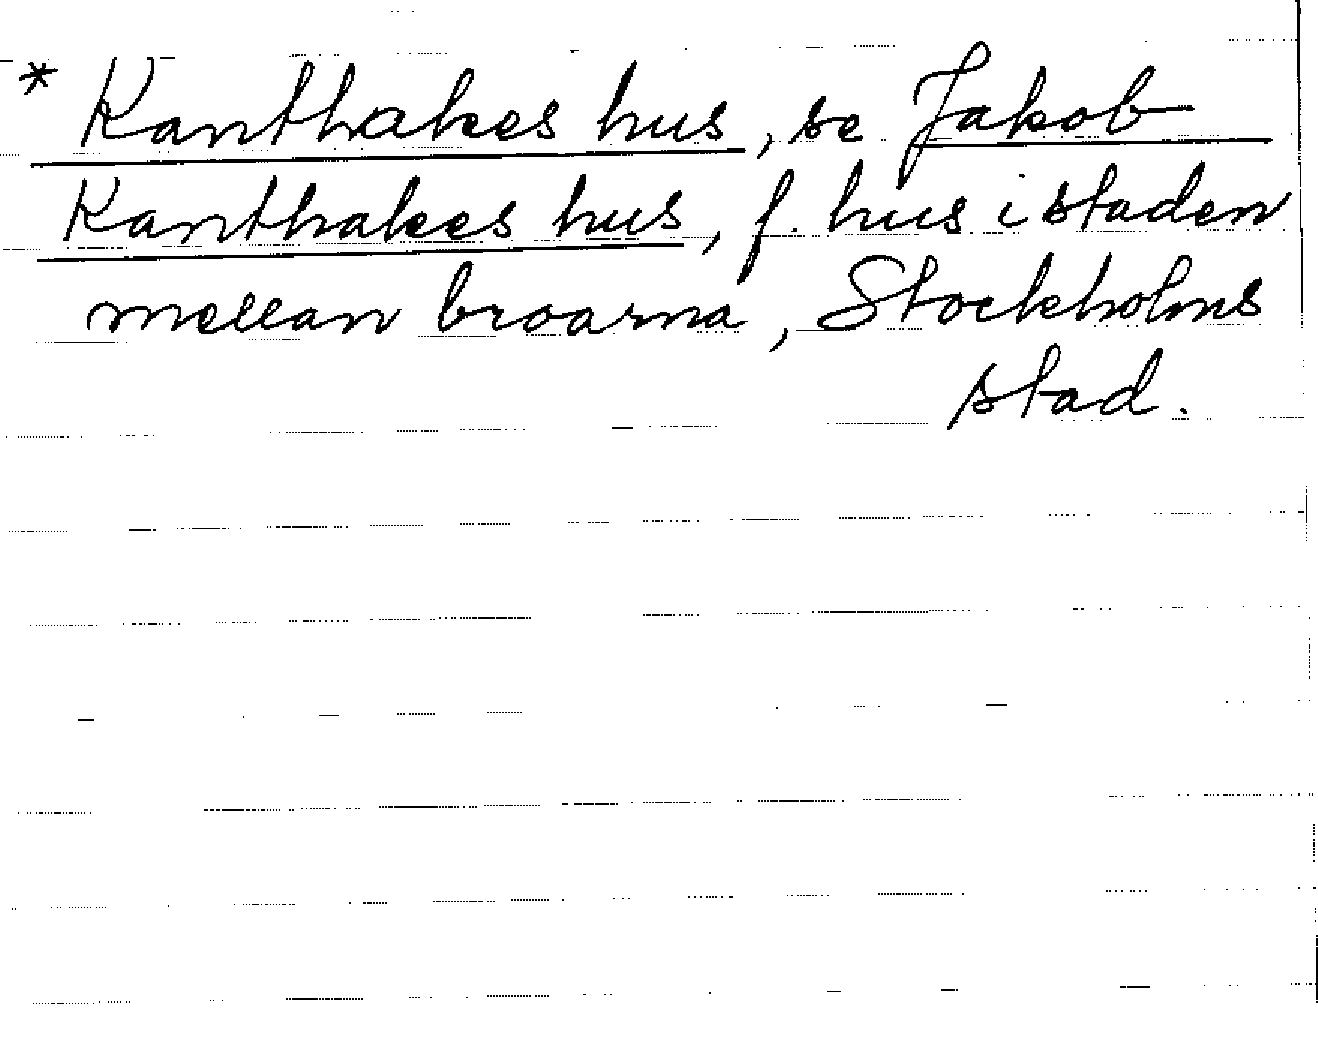 * Kanthakes hus, se Jakob
Kanthakes hus, f. hus i staden
mellan broarna, Stockholms
stad.